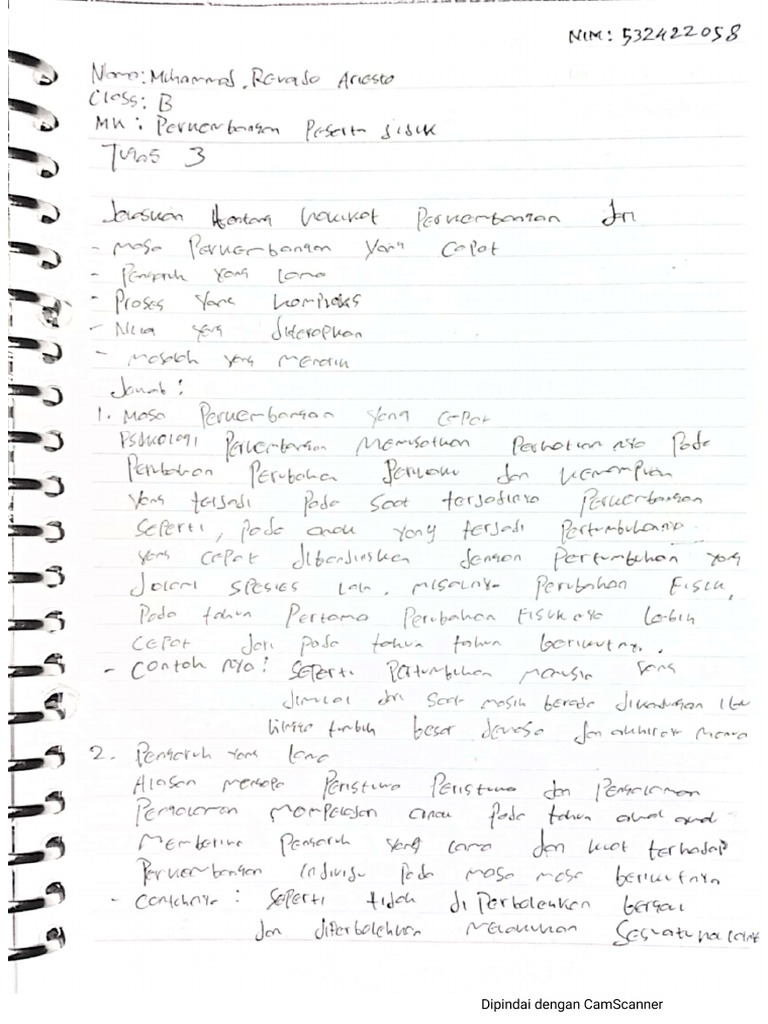 NIM: 532422058
Nama: Muhammad. Revaldo Ariesto
Class: B
MK: Perkembangan Peserta didik
Tugas 3
Jelaskan tentang hakikat Perkembangan dari
- masa Perkembangan yang cepat
- Pengaruh yang lama
- Proses yang kompleks
- Nilai yang diterapkan
- masalah yang menarik
Jawab:
1. Masa Perkembangan yang cepat
Psikologi Perkembangan memusatkan Perhatian nya Pada
Perubahan Perubahan Perilaku dan kemampuan
yang terjadi Pada saat terjadinya Perkembangan
seperti, Pada anak yang terjadi Pertumbuhannya
yang cepat dibandingkan dengan Pertumbuhan yang
dalam spesies lain, misalnya Perubahan Fisik,
Pada tahun Pertama Perubahan Fisik nya lebih
cepat dari pada tahun tahun berikutnya.
- Contoh nya: seperti Pertumbuhan manusia yang
dimulai dari saat masih berada dikandungan ibu
hingga tumbuh besar dewasa dan akhirnya menua
2. Pengaruh yang lama
Alasan mengapa Peristiwa Peristiwa dan Pengalaman
Pengalaman mempelajari anak Pada tahun awal awal
memberikan Pengaruh yang lama dan kuat terhadap
Perkembangan individu Pada masa masa berikutnya
- Contohnya: seperti tidak di Perbolehkan bergaul
dan diperbolehkan melakukan sesuatu hal
Dipindai dengan CamScanner